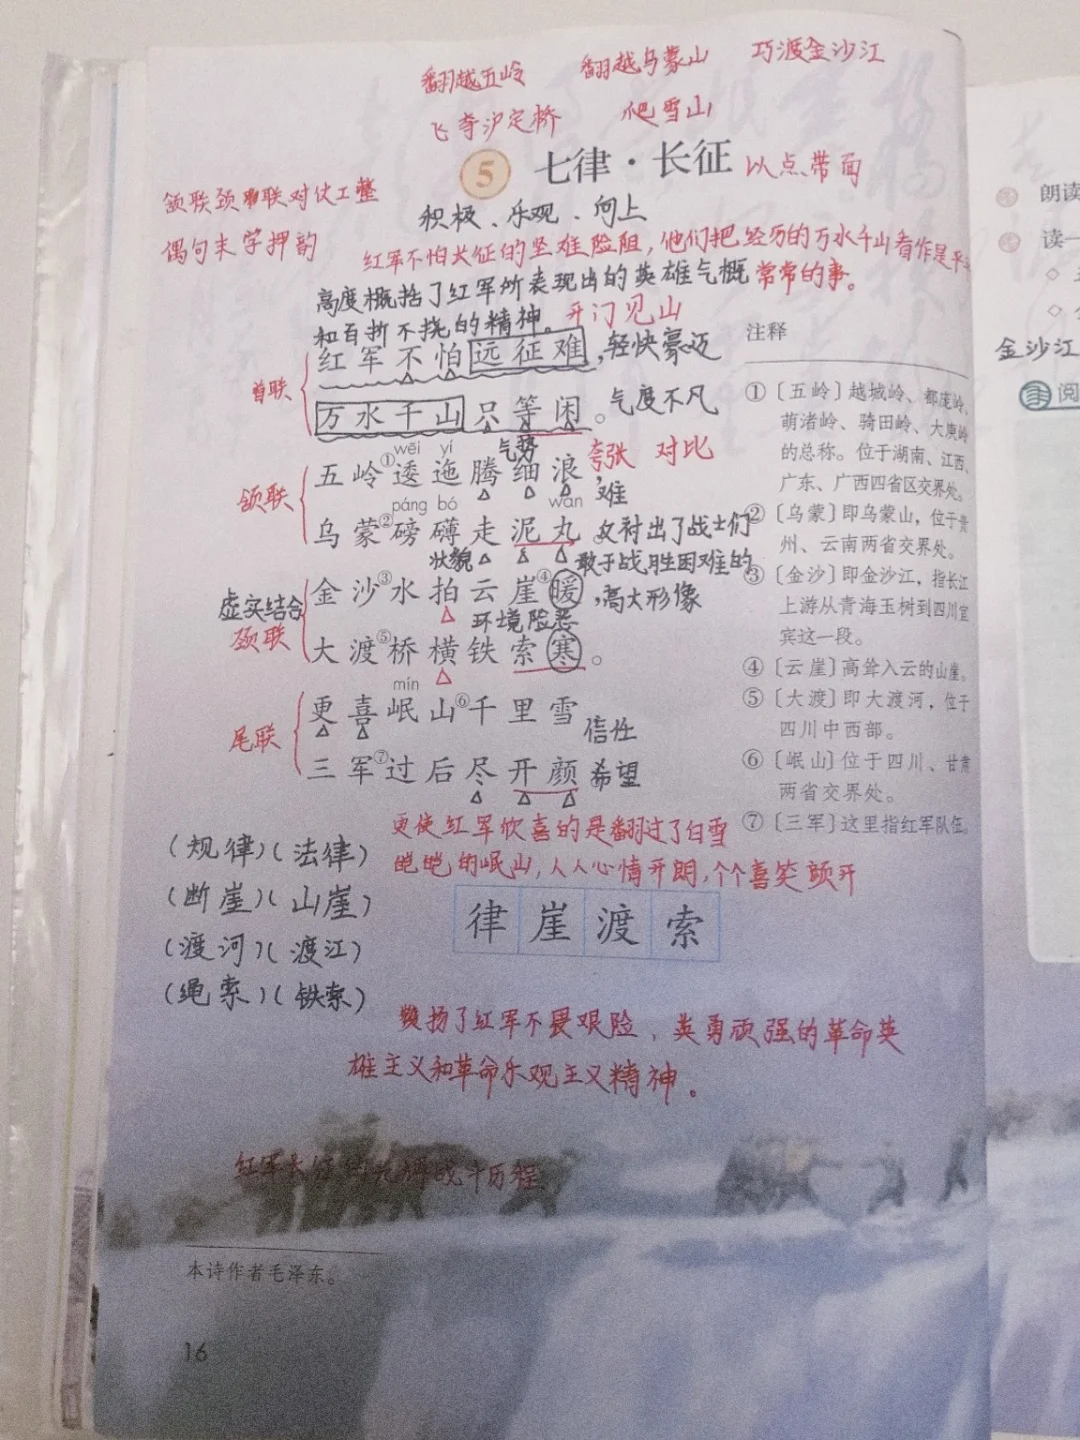 翻越五岭 翻越乌蒙山 巧渡金沙江
飞夺泸定桥 爬雪山
5 七律·长征 以点带面
颔联颈联对仗工整
偶句末字押韵
积极、乐观、向上
红军不怕长征的坚难险阻,他们把经历的万水千山看作是平
常常的事。
高度概括了红军所表现出的英雄气概
和百折不挠的精神。开门见山
首联
红军不怕远征难,轻快豪迈
万水千山只等闲。气度不凡
wēi yí 气势
颔联
五岭①逶迤腾细浪,夸张 对比
páng bó wán 难
乌蒙②磅礴走泥丸。反衬出了战士们
状貌 敢于战胜困难的
虚实结合
颈联
金沙③水拍云崖④暖,高大形像
环境险恶
大渡⑤桥横铁索寒。
mín
尾联
更喜岷山⑥千里雪 信任
三军⑦过后尽开颜 希望
更使红军欣喜的是翻过了白雪
皑皑的岷山,人人心情开朗,个个喜笑颜开
注释
①〔五岭〕越城岭、都庞岭、
萌渚岭、骑田岭、大庾岭
的总称。位于湖南、江西、
广东、广西四省区交界处。
②〔乌蒙〕即乌蒙山,位于贵
州、云南两省交界处。
③〔金沙〕即金沙江,指长江
上游从青海玉树到四川宜
宾这一段。
④〔云崖〕高耸入云的山崖。
⑤〔大渡〕即大渡河,位于
四川中西部。
⑥〔岷山〕位于四川、甘肃
两省交界处。
⑦〔三军〕这里指红军队伍。
(规律)(法律)
(断崖)(山崖)
(渡河)(渡江)
(绳索)(铁索)
律崖渡索
赞扬了红军不畏艰险,英勇顽强的革命英
雄主义和革命乐观主义精神。
红军长征
历程
本诗作者毛泽东。
16
朗读
读一
金沙江
阅